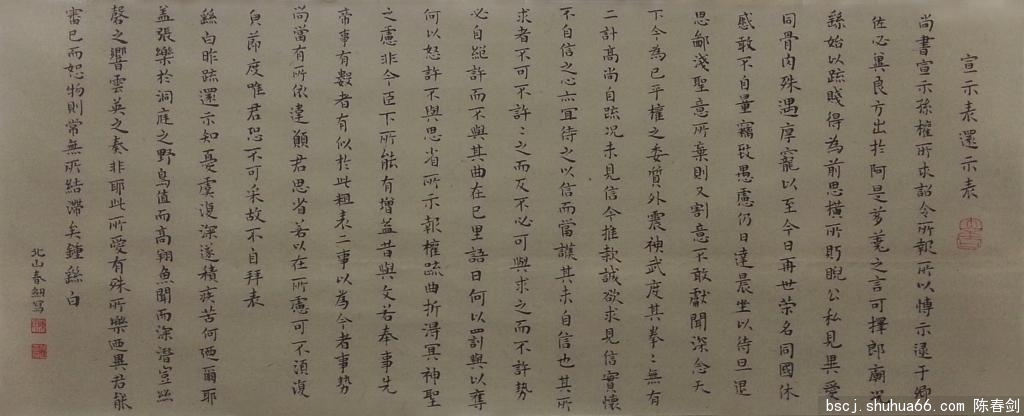 宣示表還示表
尚書宣示孫權所求詔令所報所以博示逮于卿
佐必冀良方出於阿是芻蕘之言可擇郎廟況
繇始以疏賤得為前恩橫所眄睨公私見異愛
同骨肉殊遇厚寵以至今日再世榮名同國休
慼敢不自量竊致愚慮仍日達晨坐以待旦退
思鄙淺聖意所棄則又割意不敢獻聞深念天
下今為已平權之委質外震神武度其拳〻無有
二計高尚自疏況未見信今推款誠欲求見信實懷
不自信之心亦宜待之以信而當護其未自信也其所
求者不可不許〻之而反不必可與求之而不許勢
必自絕許而不與其曲在己里語曰何以罰與以奪
何以怒許不與思省所示報權疏曲折得冥神聖
之慮非今臣下所能有增益昔與文若奉事先
帝事有數者有似於此粗表二事以為今者事勢
尚當有所依違願君思省若以在所慮可不須復
負節度唯君恐不可采故不自拜表
繇白昨疏還示知憂虞復深遂積疾苦何迺爾耶
蓋張樂於洞庭之野鳥值而高翔魚聞而深潛豈絲
磬之響雲英之奏非耶此所愛有殊所樂迺異君能
審己而恕物則常無所結滯矣鍾繇白
北山春劍寫
bscj.shuhua66.com 陈春剑